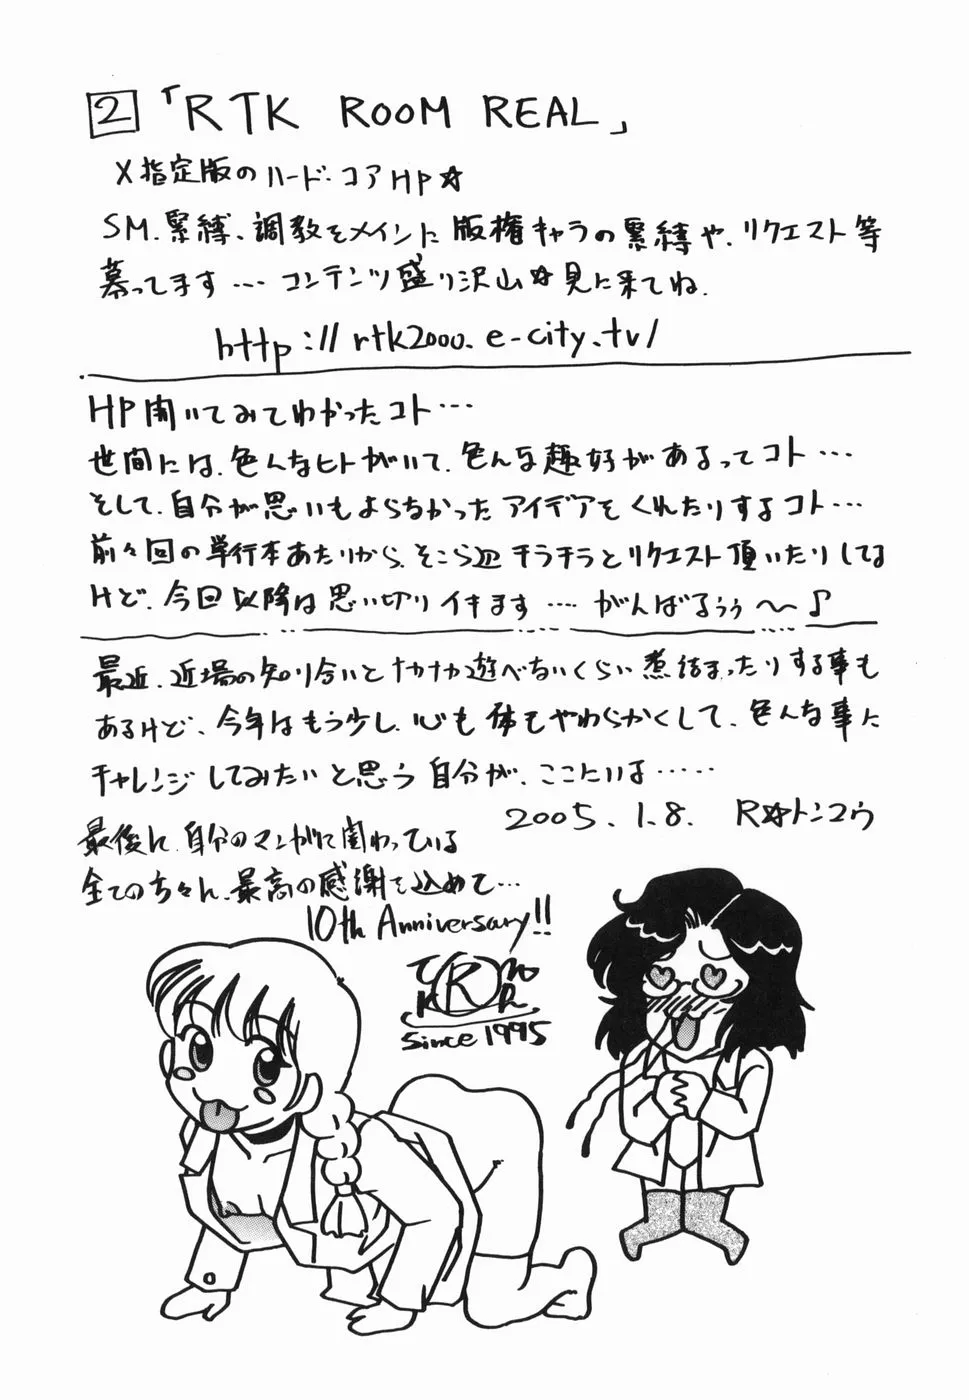 2 「RTK ROOM REAL」
X指定版のハード・コアHP☆
SM.緊縛、調教をメインに版権キャラの緊縛や、リクエスト等
募ってます…コンテンツ盛り沢山☆見に来てね.
http://rtk2000.e-city.tv/
HP開いてみてわかったコト…
世間には、色んなヒトがいて、色んな趣好があるってコト…
そして、自分が思いもよらなかったアイデアをくれたりするコト…
前々回の単行本あたりから、そこら辺チラチラとリクエスト頂いたりしてる
けど、今回以降は思い切りイキます….がんばるぅぅ〜♪
最近、近場の知り合いとナカナカ遊べないくらい煮詰まったりする事も
あるけど、今年はもう少し、心も体もやわらかくして、色んな事に
チャレンジしてみたいと思う自分が、ここにいる……
2005.1.8. R☆トンコウ
最後に、自分のマンガに関わっている
全ての方々へ、最高の感謝を込めて…
10th Anniversary!!
R
since 1995